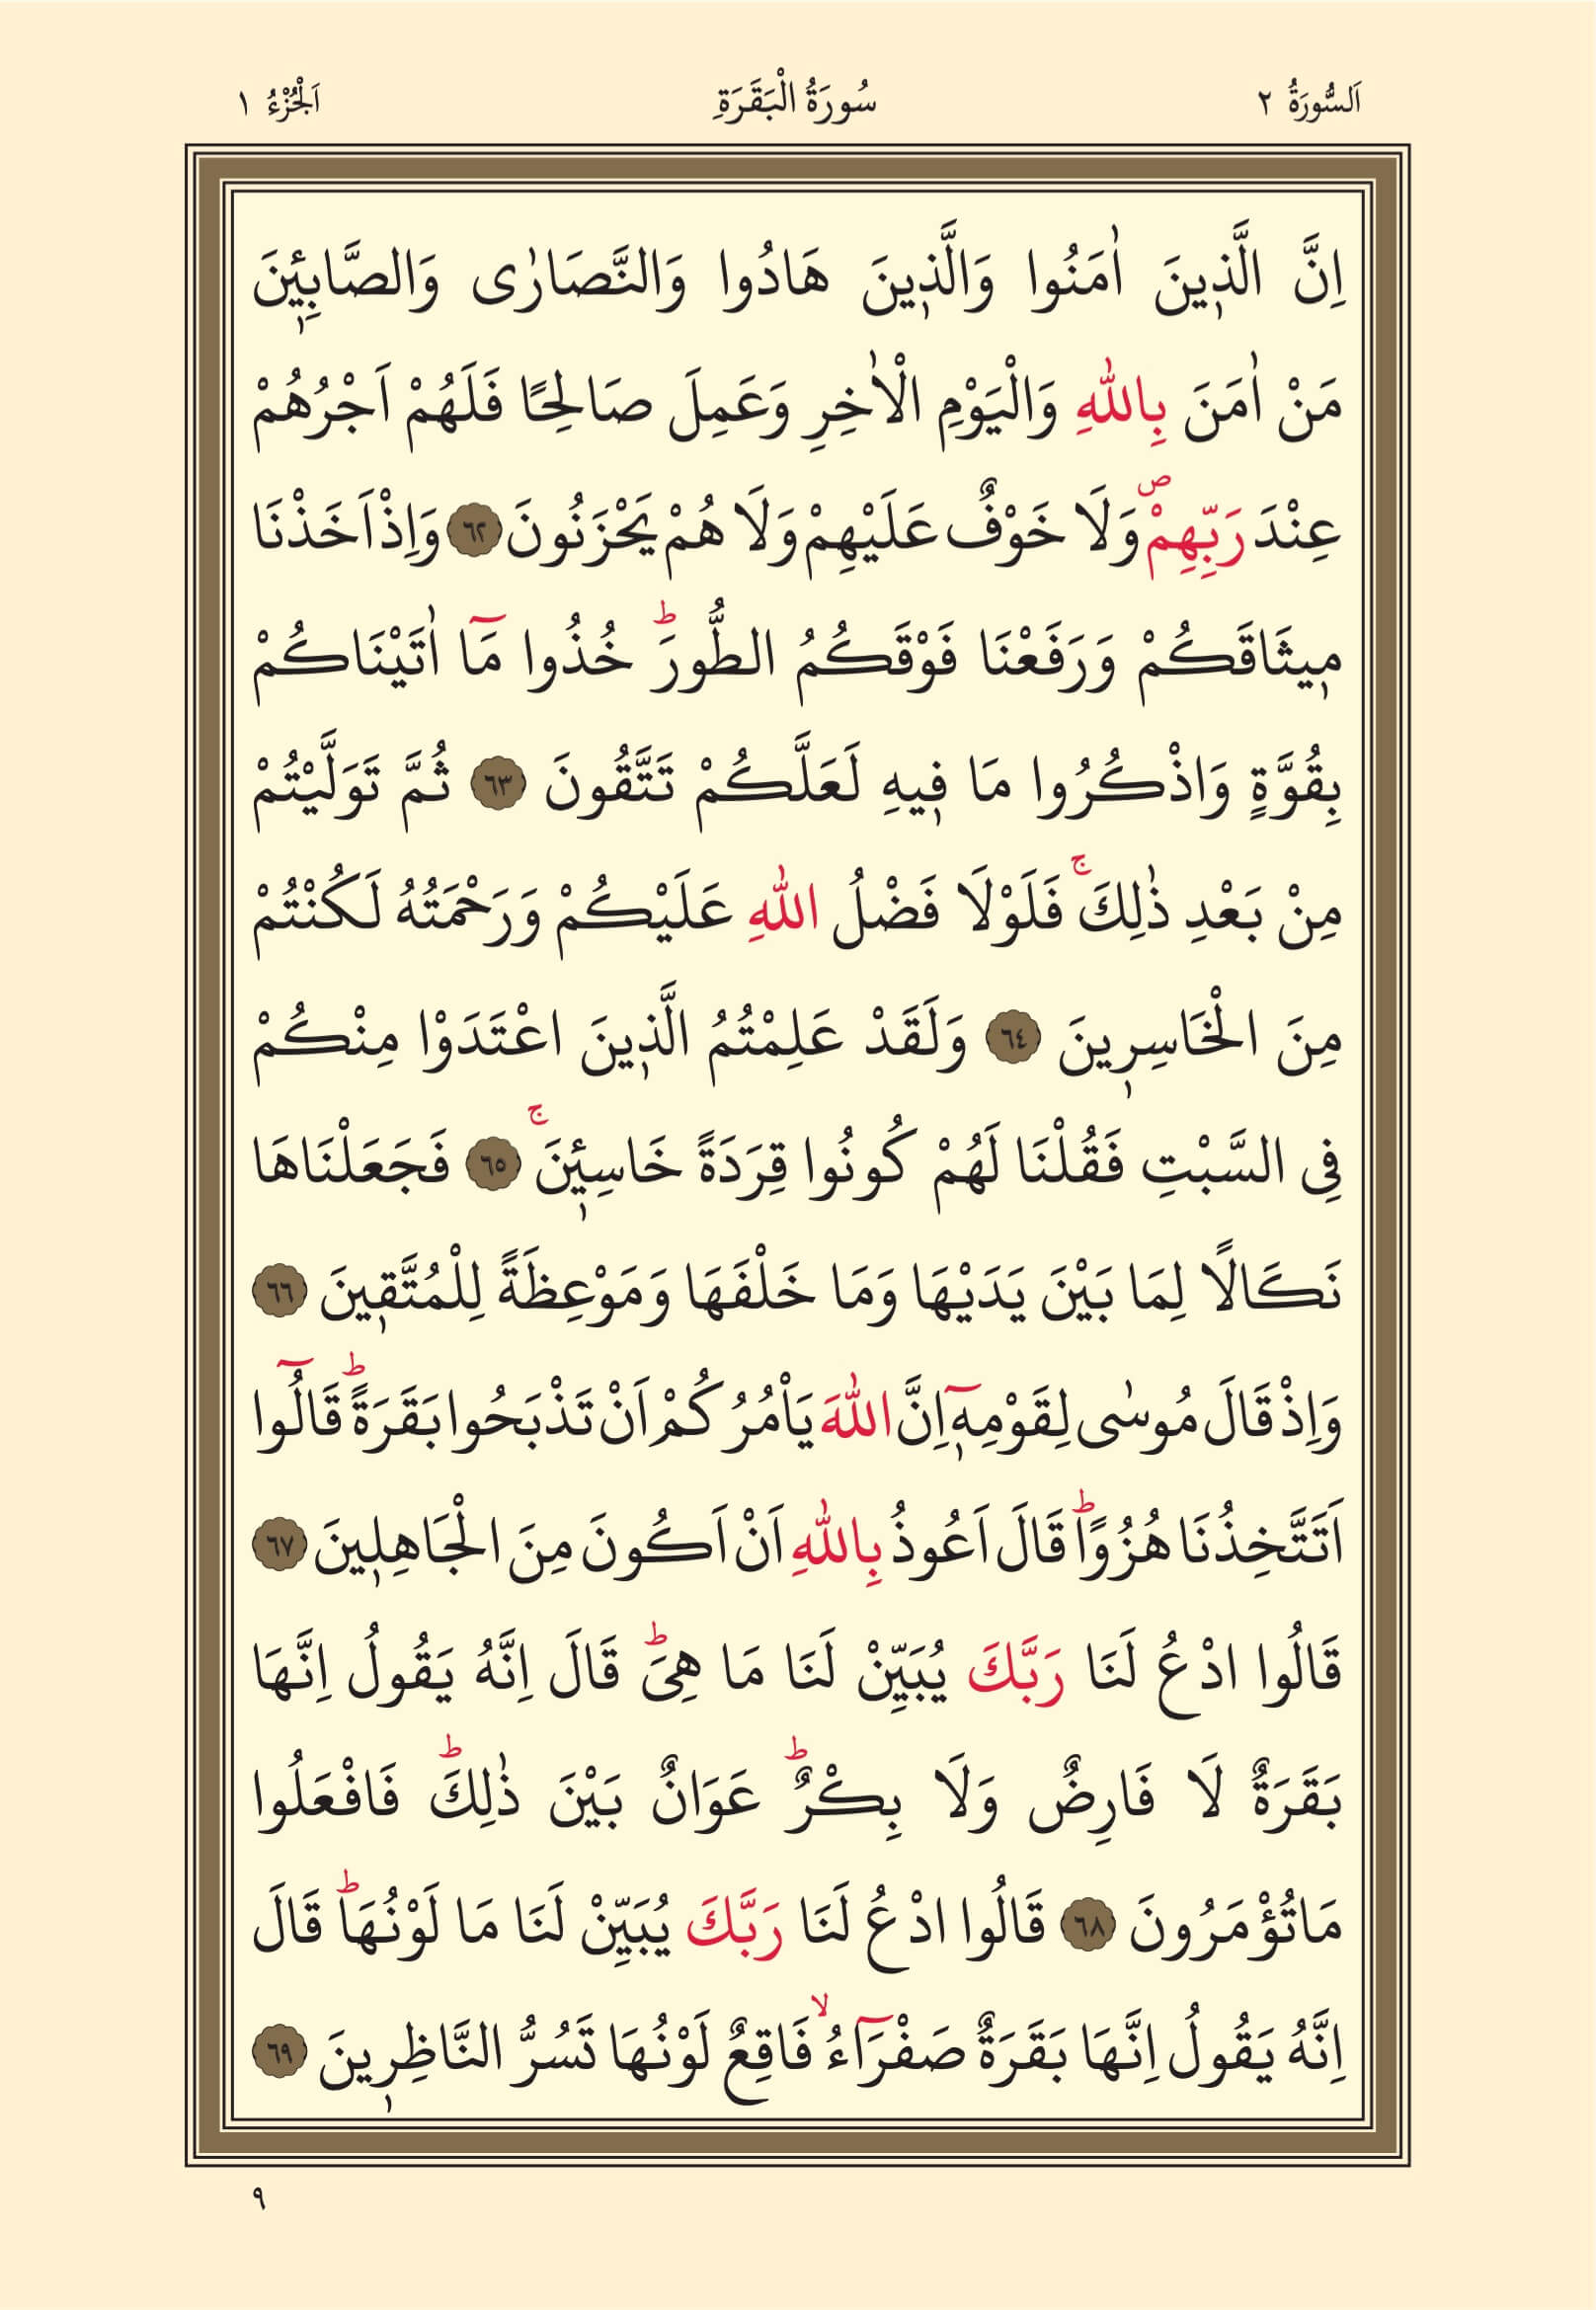 اَلسُّورَةُ ٢ سُورَةُ الْبَقَرَةِ اَلْجُزْءُ ١
اِنَّ الَّذ۪ينَ اٰمَنُوا وَالَّذ۪ينَ هَادُوا وَالنَّصَارٰى وَالصَّابِـ۪ٔينَ
مَنْ اٰمَنَ بِاللّٰهِ وَالْيَوْمِ الْاٰخِرِ وَعَمِلَ صَالِحًا فَلَهُمْ اَجْرُهُمْ
عِنْدَ رَبِّهِمْۖ وَلَا خَوْفٌ عَلَيْهِمْ وَلَا هُمْ يَحْزَنُونَ ٦٢ وَاِذْ اَخَذْنَا
م۪يثَاقَكُمْ وَرَفَعْنَا فَوْقَكُمُ الطُّورَۜ خُذُوا مَٓا اٰتَيْنَاكُمْ
بِقُوَّةٍ وَاذْكُرُوا مَا ف۪يهِ لَعَلَّكُمْ تَتَّقُونَ ٦٣ ثُمَّ تَوَلَّيْتُمْ
مِنْ بَعْدِ ذٰلِكَۚ فَلَوْلَا فَضْلُ اللّٰهِ عَلَيْكُمْ وَرَحْمَتُهُ لَكُنْتُمْ
مِنَ الْخَاسِر۪ينَ ٦٤ وَلَقَدْ عَلِمْتُمُ الَّذ۪ينَ اعْتَدَوْا مِنْكُمْ
فِى السَّبْتِ فَقُلْنَا لَهُمْ كُونُوا قِرَدَةً خَاسِـ۪ٔينَۚ ٦٥ فَجَعَلْنَاهَا
نَكَالًا لِمَا بَيْنَ يَدَيْهَا وَمَا خَلْفَهَا وَمَوْعِظَةً لِلْمُتَّق۪ينَ ٦٦
وَاِذْ قَالَ مُوسٰى لِقَوْمِه۪ٓ اِنَّ اللّٰهَ يَاْمُرُكُمْ اَنْ تَذْبَحُوا بَقَرَةًۜ قَالُٓوا
اَتَتَّخِذُنَا هُزُوًاۜ قَالَ اَعُوذُ بِاللّٰهِ اَنْ اَكُونَ مِنَ الْجَاهِل۪ينَ ٦٧
قَالُوا ادْعُ لَنَا رَبَّكَ يُبَيِّنْ لَنَا مَا هِىَۜ قَالَ اِنَّهُ يَقُولُ اِنَّهَا
بَقَرَةٌ لَا فَارِضٌ وَلَا بِكْرٌۜ عَوَانٌ بَيْنَ ذٰلِكَۜ فَافْعَلُوا
مَاتُؤْمَرُونَ ٦٨ قَالُوا ادْعُ لَنَا رَبَّكَ يُبَيِّنْ لَنَا مَا لَوْنُهَاۜ قَالَ
اِنَّهُ يَقُولُ اِنَّهَا بَقَرَةٌ صَفْرَٓاءُۙ فَاقِعٌ لَوْنُهَا تَسُرُّ النَّاظِر۪ينَ ٦٩
٩